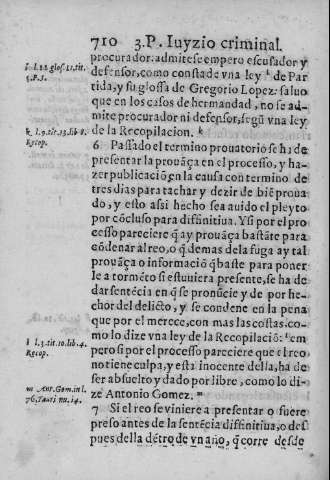 710 3.P. Iuyzio criminal.
procurador: admitese empero escusador y
defensor, como consta de vna ley i de Par
tida, y su glossa de Gregorio Lopez: saluo
que en los casos de hermandad, no se ad-
mite procurador ni defensor, segũ vna ley
de la Recopilacion. k
6 Passado el termino prouatorio se ha de
presentar la prouãça en el processo, y ha-
zer publicaciõ, en la causa con termino de
tres dias para tachar y dezir de biẽ proua
do, y esto assi hecho sea auido el pleyto
por cõcluso para difinitiua. Y si por el pro-
cesso pareciere q̃ ay prouãça bastãte para
cõdenar al reo, o q̃ demas de la fuga ay tal
prouãça o informaciõ q̃ baste para poner
le a tormẽto si estuuiera presente, se ha de
dar sentẽcia en q̃ se pronũcie y de por he-
chor del delicto, y se condene en la pena
que por el merece, con mas las costas: co-
mo lo dize vna ley de la Recopilaciõ: l em
pero si por el processo pareciere que el reo
no tiene culpa, y esta inocente della, ha de
ser absuelto y dado por libre, como lo di-
ze Antonio Gomez. m
7 Si el reo se viniere a presentar o fuere
preso antes de la sentẽcia difinitiua, o des
pues della dẽtro de vn año, q̃ corre desde
i l.12. glos. 11. tit.
5. P. 5.
k l.9. tit. 13. lib. 8.
Recop.
l l.3. tit. 10. lib. 4.
Recop.
m Ant. Gom. in l.
76. Tauri nu. 14.